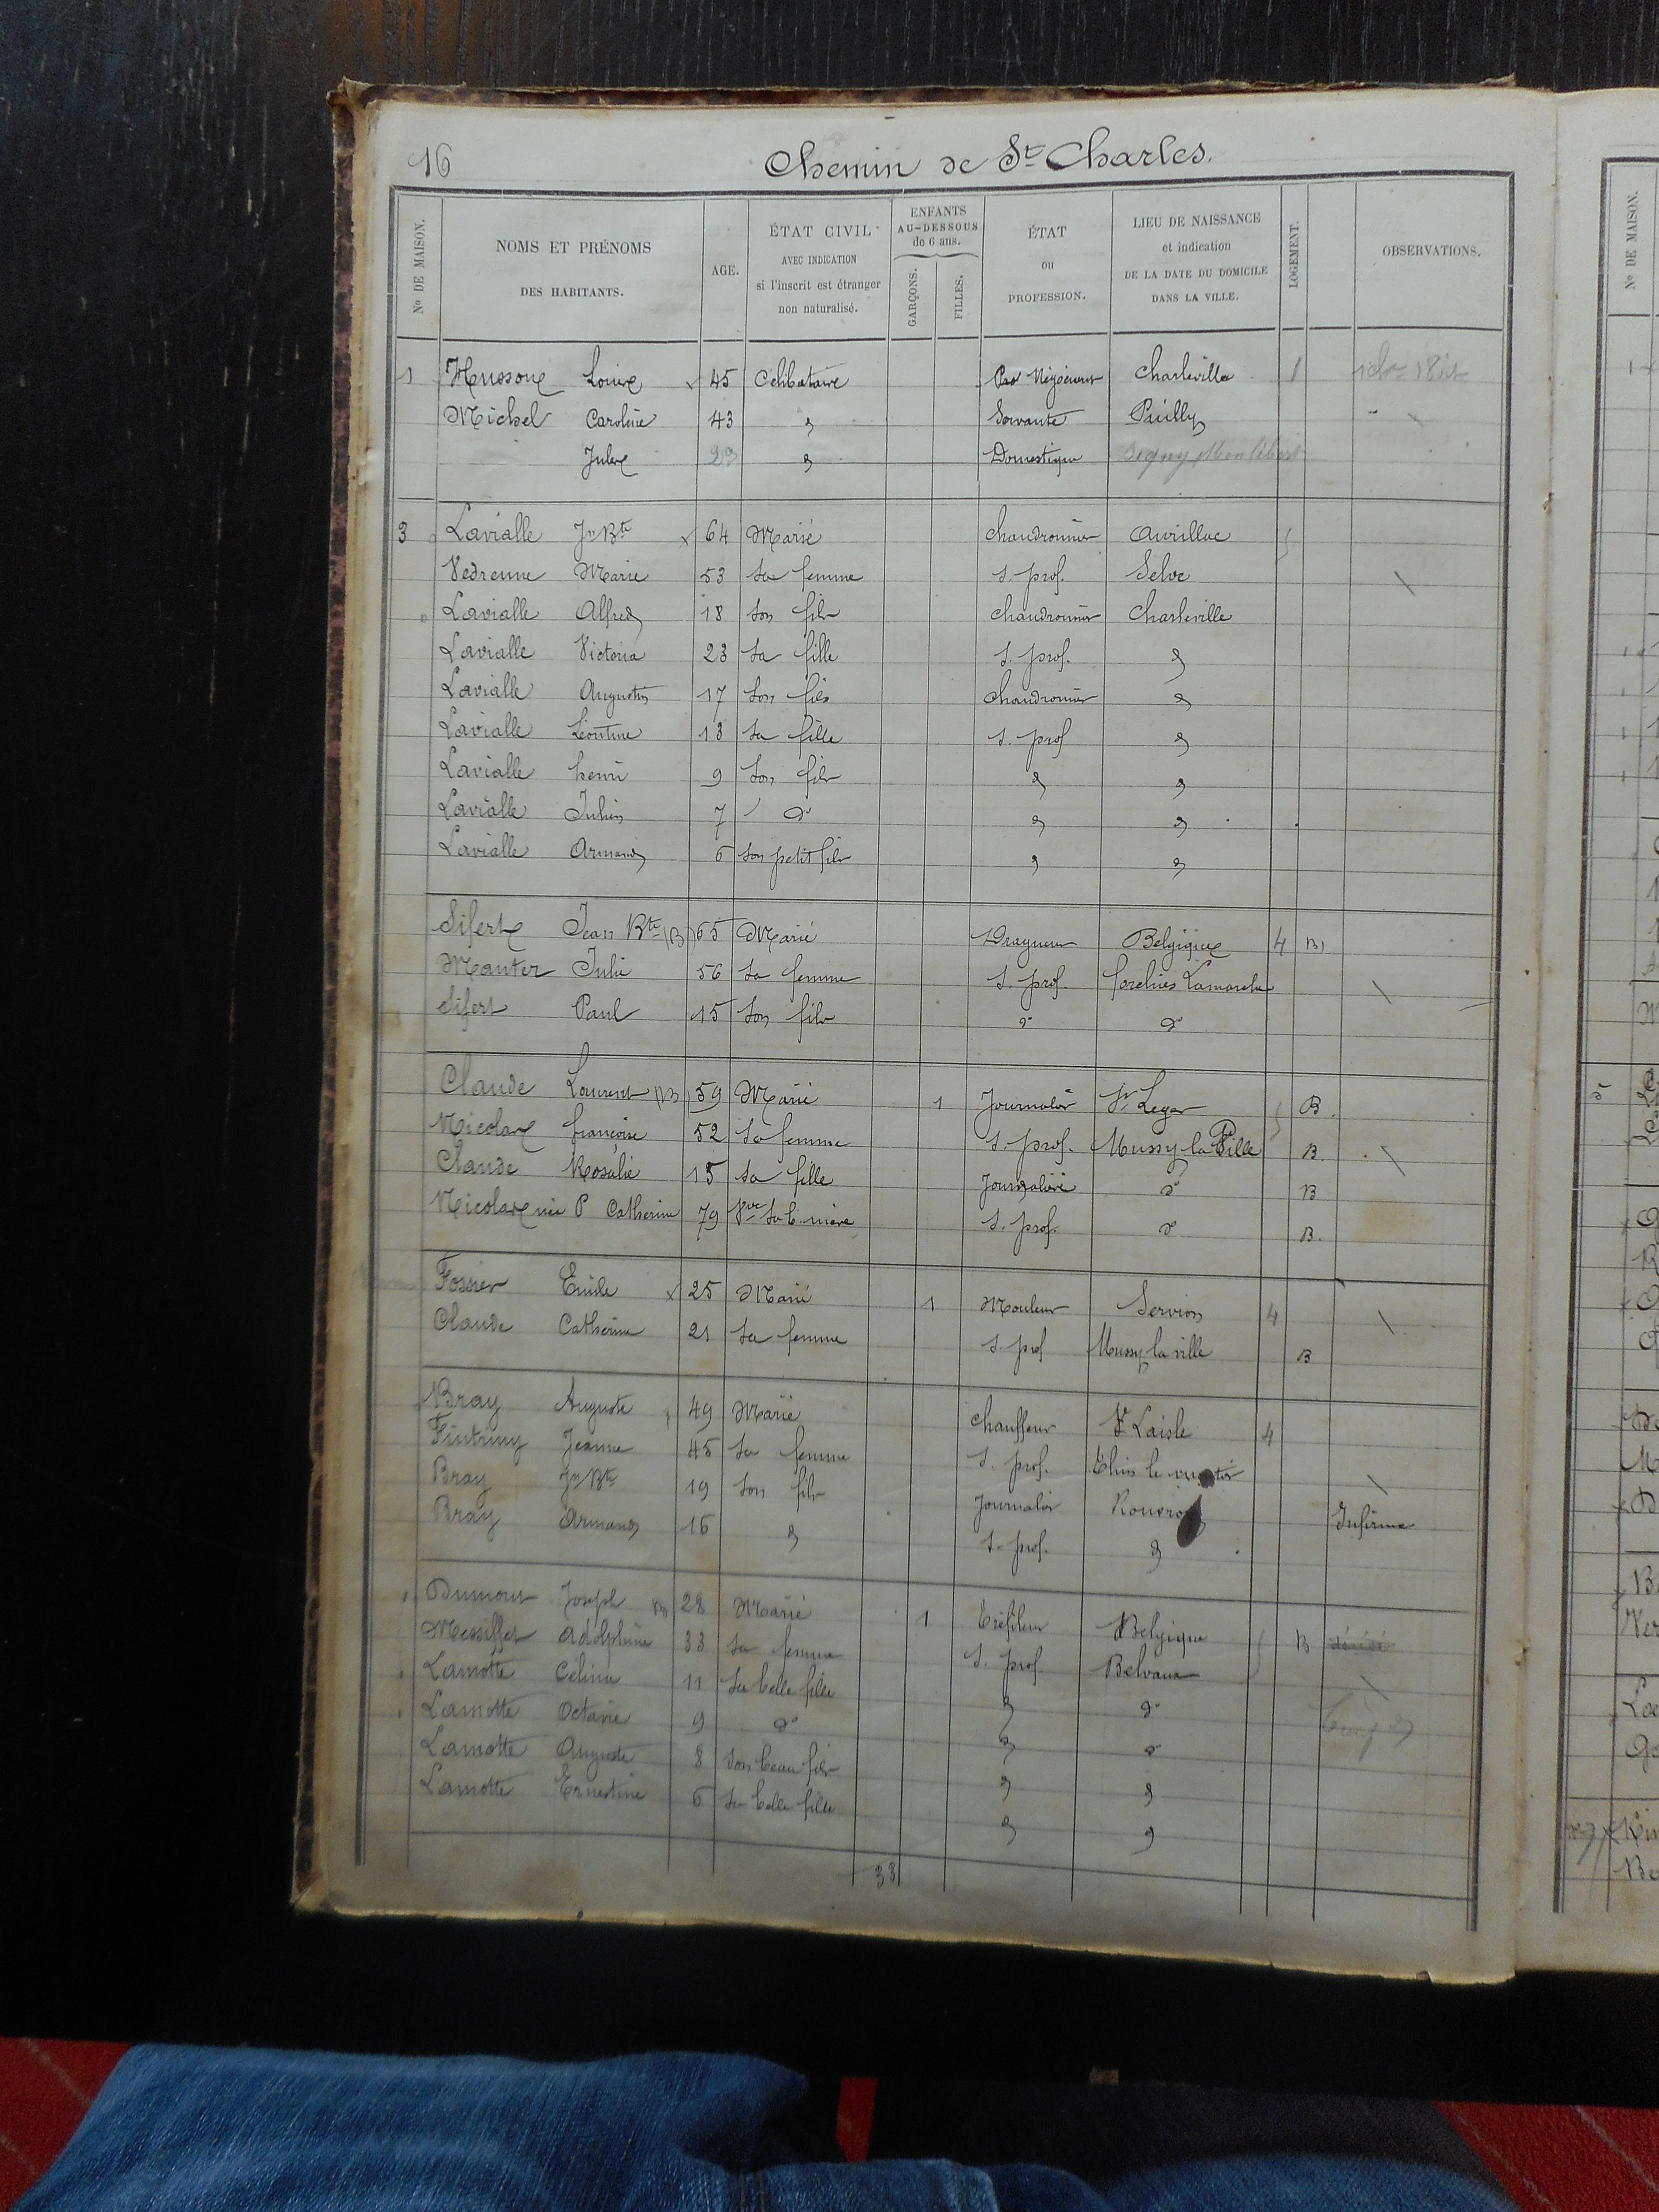 16 Chemin de St Charles.
No DE MAISON. NOMS ET PRÉNOMS DES HABITANTS. AGE. ÉTAT CIVIL AVEC INDICATION si l'inscrit est étranger non naturalisé. ENFANTS AU-DESSOUS de 6 ans. GARÇONS. FILLES. ÉTAT OU PROFESSION. LIEU DE NAISSANCE et indication DE LA DATE DU DOMICILE DANS LA VILLE. LOGEMENT. OBSERVATIONS.
1 Louise x 45 Celibataire Charleville
Michel Caroline 43 " Servante Puilly
Jules 23 " Domestique
3 Lavialle Jn Bte x 64 Marié chaudronnier Aurillac
Vedrenne Marie 53 sa femme s. prof. Selve
Lavialle Alfred 18 son fils chaudronnier Charleville
Lavialle Victoria 23 sa fille s. prof. "
Lavialle Augustin 17 son fils chaudronnier "
Lavialle Léontine 13 sa fille s. prof "
Lavialle henri 9 son fils " "
Lavialle Julien 7 do " "
Lavialle Armand 6 son petit fils " "
Sifert Jean Bte (B) 65 Marié Dragueur Belgique 4 B
Manter Julie 56 sa femme s. prof. Lamarche
Sifert Paul 15 son fils do do
Claude Laurent (B) 59 Marié 1 Journalier St Leger B.
Nicolas françoise 52 sa femme s. prof. Mussy la Ville B.
Claude Rosalie 15 sa fille Journalière do B
Nicolas née P Catherine 79 Vve sa b. mère s. prof. do B.
Fossier Emile x 25 Marié 1 Mouleur Servion 4
Claude Catherine 21 sa femme s. prof Mussy la ville B
Bray Auguste 49 Marié chauffeur St Laisle 4
Jeanne 45 sa femme s. prof.
Bray Jn Bte 19 son fils Journalier Rouvroy
Bray Armand 16 " s. prof. " Infirme
Dumont Joseph (B) 28 Marié 1 Tréfileur Belgique B
Adolphine 33 sa femme s. prof Belvaux
Lamotte Célina 11 sa belle fille " do
Lamotte Octavie 9 do " do
Lamotte Auguste 8 son beau fils " "
Lamotte Ernestine 6 sa belle fille " "
33